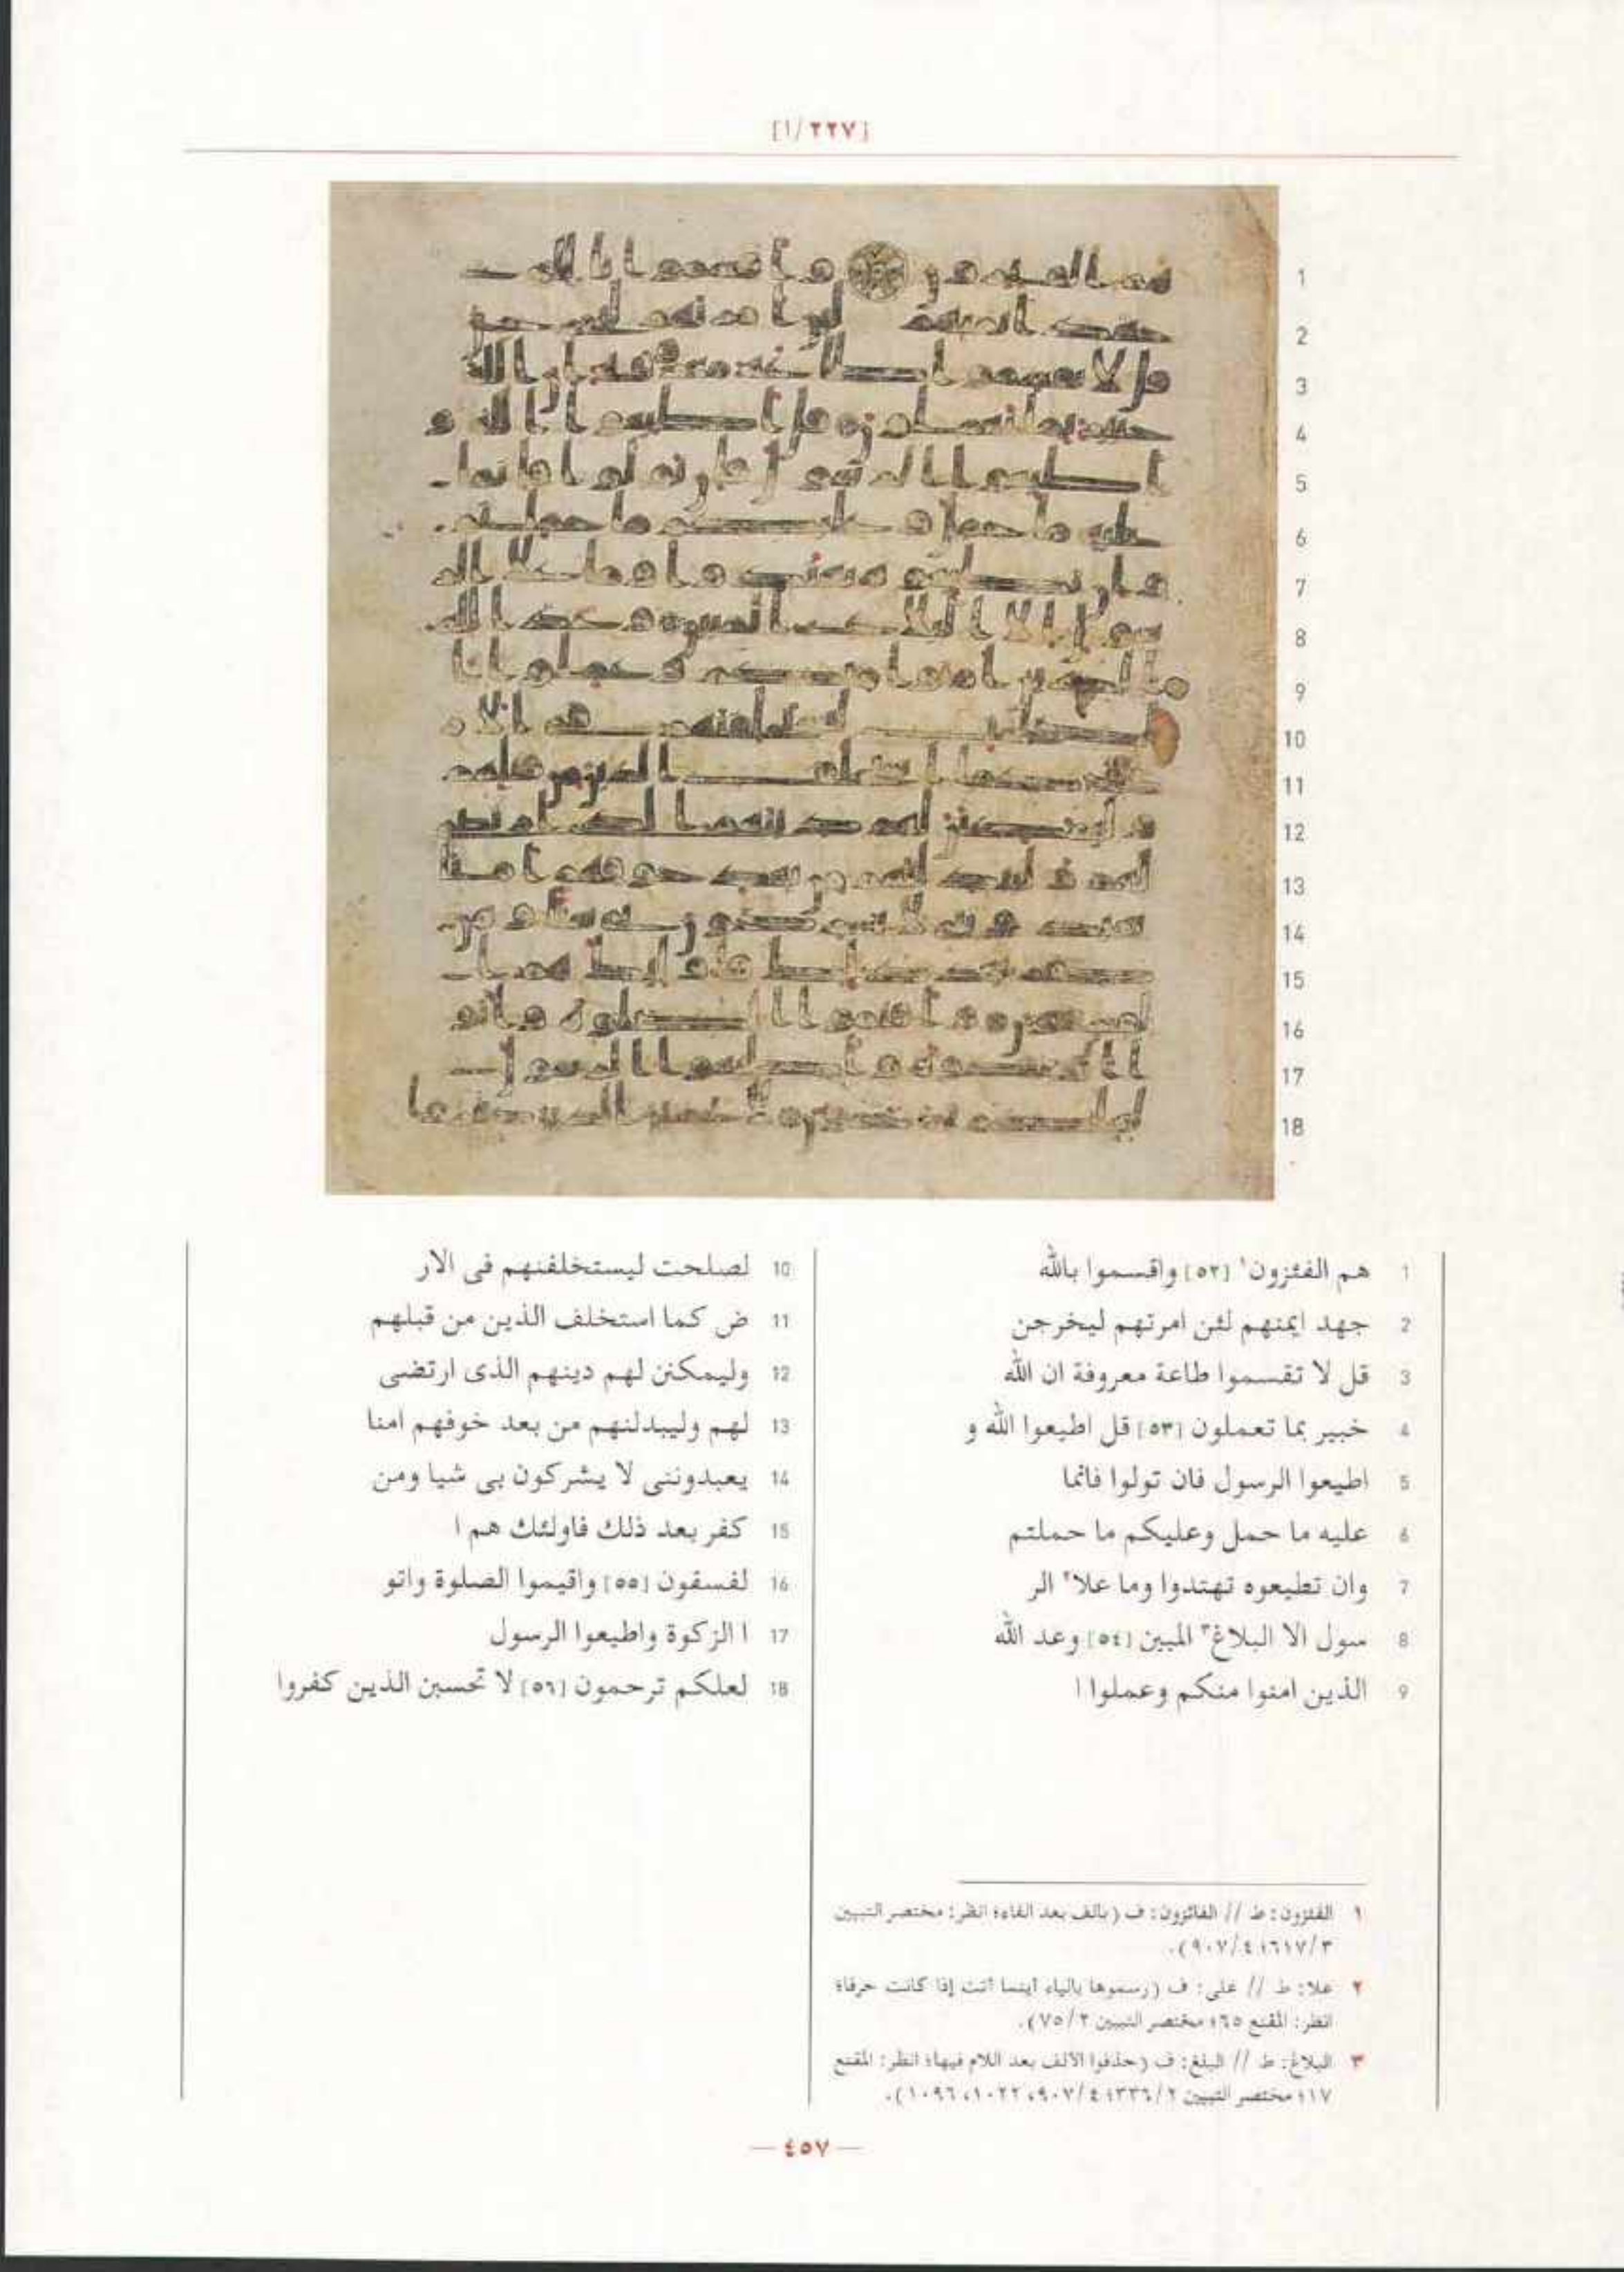 [٢٢٧/١]
1 هم الفئزون١ [٥٢] واقسموا بالله
2 جهد ايمنهم لئن امرتهم ليخرجن
3 قل لا تقسموا طاعة معروفة ان الله
4 خبير بما تعملون [٥٣] قل اطيعوا الله و
5 اطيعوا الرسول فان تولوا فانما
6 عليه ما حمل وعليكم ما حملتم
7 وان تطيعوه تهتدوا وما علا٢ الر
8 سول الا البلاغ٣ المبين [٥٤] وعد الله
9 الذين امنوا منكم وعملوا ا
10 لصلحت ليستخلفنهم فى الار
11 ض كما استخلف الذين من قبلهم
12 وليمكنن لهم دينهم الذى ارتضى
13 لهم وليبدلنهم من بعد خوفهم امنا
14 يعبدوننى لا يشركون بى شيا ومن
15 كفر بعد ذلك فاولئك هم ا
16 لفسقون [٥٥] واقيموا الصلوة واتو
17 ا الزكوة واطيعوا الرسول
18 لعلكم ترحمون [٥٦] لا تحسبن الذين كفروا
١ الفئزون: ط // الفائزون: ف (بالف بعد الفاء؛ انظر: مختصر التبيين
٣/٦١٧؛ ٤/٩٠٧).
٢ علا: ط // على: ف (رسموها بالياء أينما أتت إذا كانت حرفا؛
انظر: المقنع ٦٥؛ مختصر التبيين ٢/٧٥).
٣ البلاغ: ط // البلغ: ف (حذفوا الألف بعد اللام فيها؛ انظر: المقنع
١٧؛ مختصر التبيين ٢/٣٣٦؛ ٤/٩٠٧، ١٠٢٢، ١٠٩٦).
— ٤٥٧ —